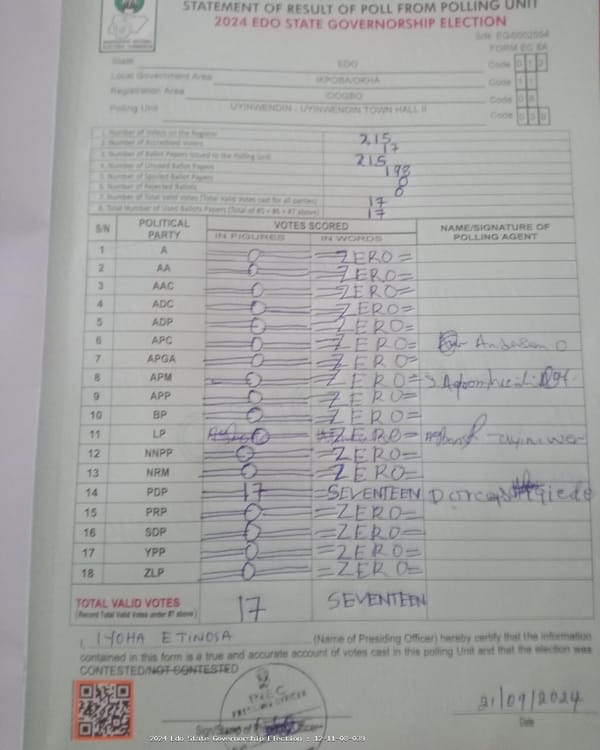 STATEMENT OF RESULT OF POLL FROM POLLING UNIT
2024 EDO STATE GOVERNORSHIP ELECTION
FORM EC 8A
State EDO Code 012
Local Government Area IKPOBA/OKHA Code
Registration Area OGBO Code
Polling Unit UYINWENDIN - UYINWENDIN TOWN HALL II Code
1. Number of Voters on the Register 215
2. Number of Accredited Voters 17
3. Number of Ballot Papers Issued to the Polling Unit 215
4. Number of Unused Ballot Papers 198
5. Number of Spoiled Ballot Papers 0
6. Number of Rejected Ballots 0
7. Number of Total Valid Votes (Total Valid Votes cast for all parties) 17
8. Total Number of Used Ballot Papers (Total of #5 + #6 + #7 above) 17
S/N POLITICAL PARTY VOTES SCORED NAME/SIGNATURE OF POLLING AGENT
IN FIGURES IN WORDS
1 A 0 =ZERO=
2 AA 0 =ZERO=
3 AAC 0 =ZERO=
4 ADC 0 =ZERO=
5 ADP 0 =ZERO=
6 APC 0 =ZERO=
7 APGA 0 =ZERO=
8 APM 0 =ZERO=
9 APP 0 =ZERO=
10 BP 0 =ZERO=
11 LP 0 =ZERO=
12 NNPP 0 =ZERO=
13 NRM 0 =ZERO=
14 PDP 17 =SEVENTEEN
15 PRP 0 =ZERO=
16 SDP 0 =ZERO=
17 YPP 0 =ZERO=
18 ZLP 0 =ZERO=
TOTAL VALID VOTES 17 SEVENTEEN
(Record Total Valid Votes under #7 above)
I, IYOHA ETINOSA (Name of Presiding Officer) hereby certify that the information
contained in this form is a true and accurate account of votes cast in this polling Unit and that the election was
CONTESTED/NOT CONTESTED
INEC
PRESIDING OFFICER
21/09/2024
Date
2024 Edo State Governorship Election : 12-11-08-039